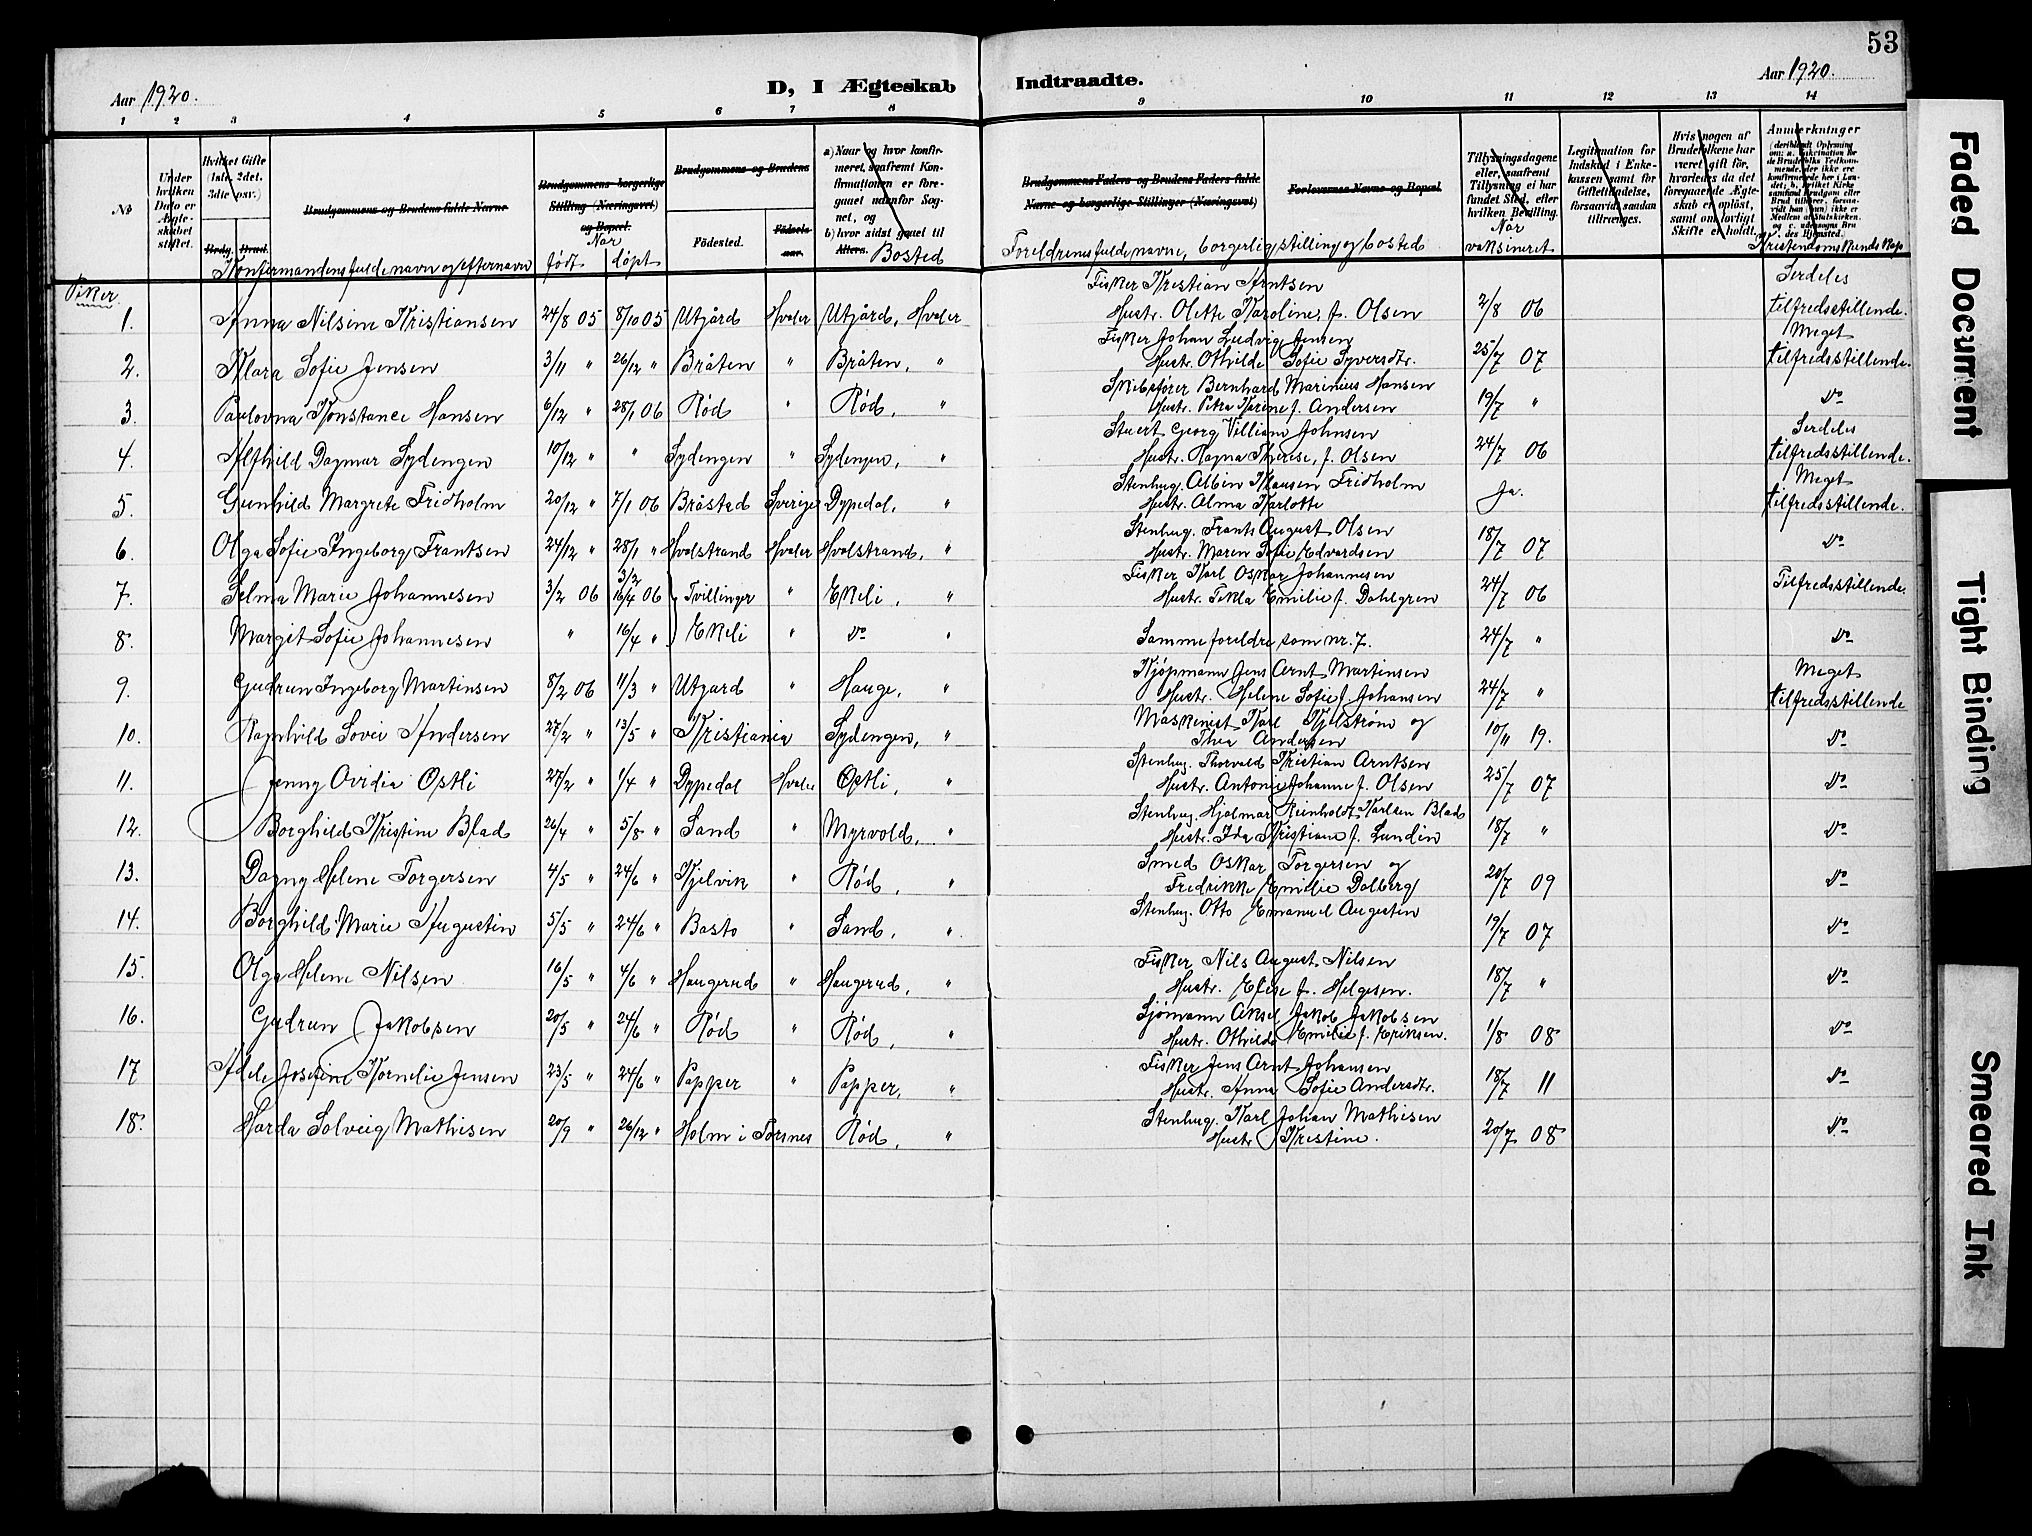 53
Aar 1920.
D, I Ægteskab Indtraadte.
Aar 1920.
1 2 3 4 5 6 7 8 9 10 11 12 13 14
№
Under hvilken Dato er Ægteskabet stiftet.
Hvilket Gifte (1ste, 2det, 3die osv.)
Brdg. Brud.
Brudgommens og Brudens fulde Navne
Brudgommens borgerlige Stilling (Næringsvei) og Bopæl.
Brudgommens og Brudens
Födested. Födselsaar.
a) Naar og hvor konfirmeret, saafremt Konfirmationen er foregaaet udenfor Sognet, og
b) hvor sidst gaaet til Alters.
Brudgommens Faders og Brudens Faders fulde Navne og borgerlige Stillinger (Næringsvei)
Forlovernes Navne og Bopæl.
Tillysningsdagene eller, saafremt Tillysning ei har fundet Sted, efter hvilken Bevilling.
Legitimation for Indskud i Enkekassen samt for Giftetilladelse, forsaavidt saadan tiltrænges.
Hvis nogen af Brudefolkene har været gift før, hvorledes da det foregaaende Ægteskab er opløst, samt om lovligt Skifte er holdt.
Anmærkninger
I, Konfirmandens fulde navn og efternavn
Når
født døpt
Bosted
Foreldrenes fulde navne, borgerlig stilling og bosted
Når vaksineret
Kristendomskundskap
Piker.
1. Anna Nilsine Kristiansen 24/8 05 8/10 05 Utgård Hvaler Utgård, Hvaler Fisker Kristian Arntsen 2/8 06 Serdeles
Hustr. Olette Karoline, f. Olsen tilfredsstillende.
2. Klara Sofie Jensen 3/11 " 26/12 " Bråten " Bråten, " Fisker Johan Ludvig Jensen 25/7 07 Meget
Hustr. Othilde Sofie Syversdtr. tilfredsstillende.
3. Paulovna Konstance Hansen 6/12 " 28/1 06 Rød " Rød, " Skibsfører Bernhard Marinius Hansen 19/7 " do
Hustr. Petra Karine f. Andersen
4. Alfhild Dagmar Sydengen 10/12 " " Sydengen " Sydengen, " Stuert Georg Villiam Johnsen 24/7 06 Serdeles
Hustr. Ragna Therese, f. Olsen tilfredsstillende.
5. Gunhild Margrete Fridholm 20/12 " 7/1 06 Bråstad Sverige Dypedal, " Stenhug. Albin Klausen Fridholm Ja. Meget
Hustr. Alma Karlotte tilfredsstillende.
6. Olga Sofie Ingeborg Frantsen 24/12 " 28/1 " Hvalstrand Hvaler Hvalstrand, " Stenhug. Frants August Olsen 18/7 07 do
Hustr. Maren Sofie Edvardsen
7. Selma Marie Johannesen 3/2 06 3/2 16/4 06 Tvillinger " Ekeli, " Fisker Karl Oskar Johannesen 24/7 06 Tilfredsstillende.
Hustr. Tekla Emilie f. Dahlgren
8. Margit Sofie Johannesen " 16/4 " Ekeli " do " Samme foreldre som nr. 7. 24/7 " do
9. Gudrun Ingeborg Martinsen 8/2 06 11/3 " Utgard " Hauge, " Kjøpmann Jens Arnt Martinsen 24/7 " Meget
Hustr. Helene Sofie f. Johansen tilfredsstillende
10. Ragnhild Lovei Andersen 27/2 " 13/5 " Kristiania Sydengen, " Maskinist Karl Kjelstrøm og 10/11 19. do
Thea Andersen
11. Jenny Ovidia Ostli 27/2 " 1/4 " Dypedal Hvaler Ostli, " Stenhug. Thorvald Kristian Arntsen 25/7 07 do
Hustr. Antonie Johanne f. Olsen
12. Borghild Kristine Blad 26/4 " 5/8 " Sand " Myrvold, " Stenhug. Hjalmar Reinholdt Karlsen Blad 18/7 " do
Hustr. Ida Kristiane f. Lundin
13. Dagny Helene Torgersen 4/5 " 24/6 " Kjelvik " Rød, " Smed Oskar Torgersen og 20/7 09 do
Fredrikke Emilie Dalberg
14. Borghild Marie Augustin 5/5 " 24/6 " Basto " Sand, " Stenhug. Otto Emanuel Augusten 19/7 07 do
15. Olga Helene Nilsen 16/5 " 4/6 " Haugerud " Haugerud, " Fisker Nils August Nilsen 18/7 " do
Hustr. Elise f. Helgesen.
16. Gudrun Jakobsen 20/5 " 24/6 " Rød " Rød, " Sjømann Aksel Jakob Jakobsen 1/8 08 do
Hustr. Othilde Emilie f. Eriksen.
17 Adele Josefine Kornelie Jensen 23/5 " 24/6 " Papper " Papper, " Fisker Jens Arnt Johansen 18/7 11 do
Hustr. Anna Sofie Andersdtr.
18. Harda Solveig Mathisen 20/9 " 26/12 " Holm i Torsnes Rød, " Stenhug. Karl Johan Mathisen 20/7 08 do
Hustr Kristine.
Faded Document
Tight Binding
Smeared Ink